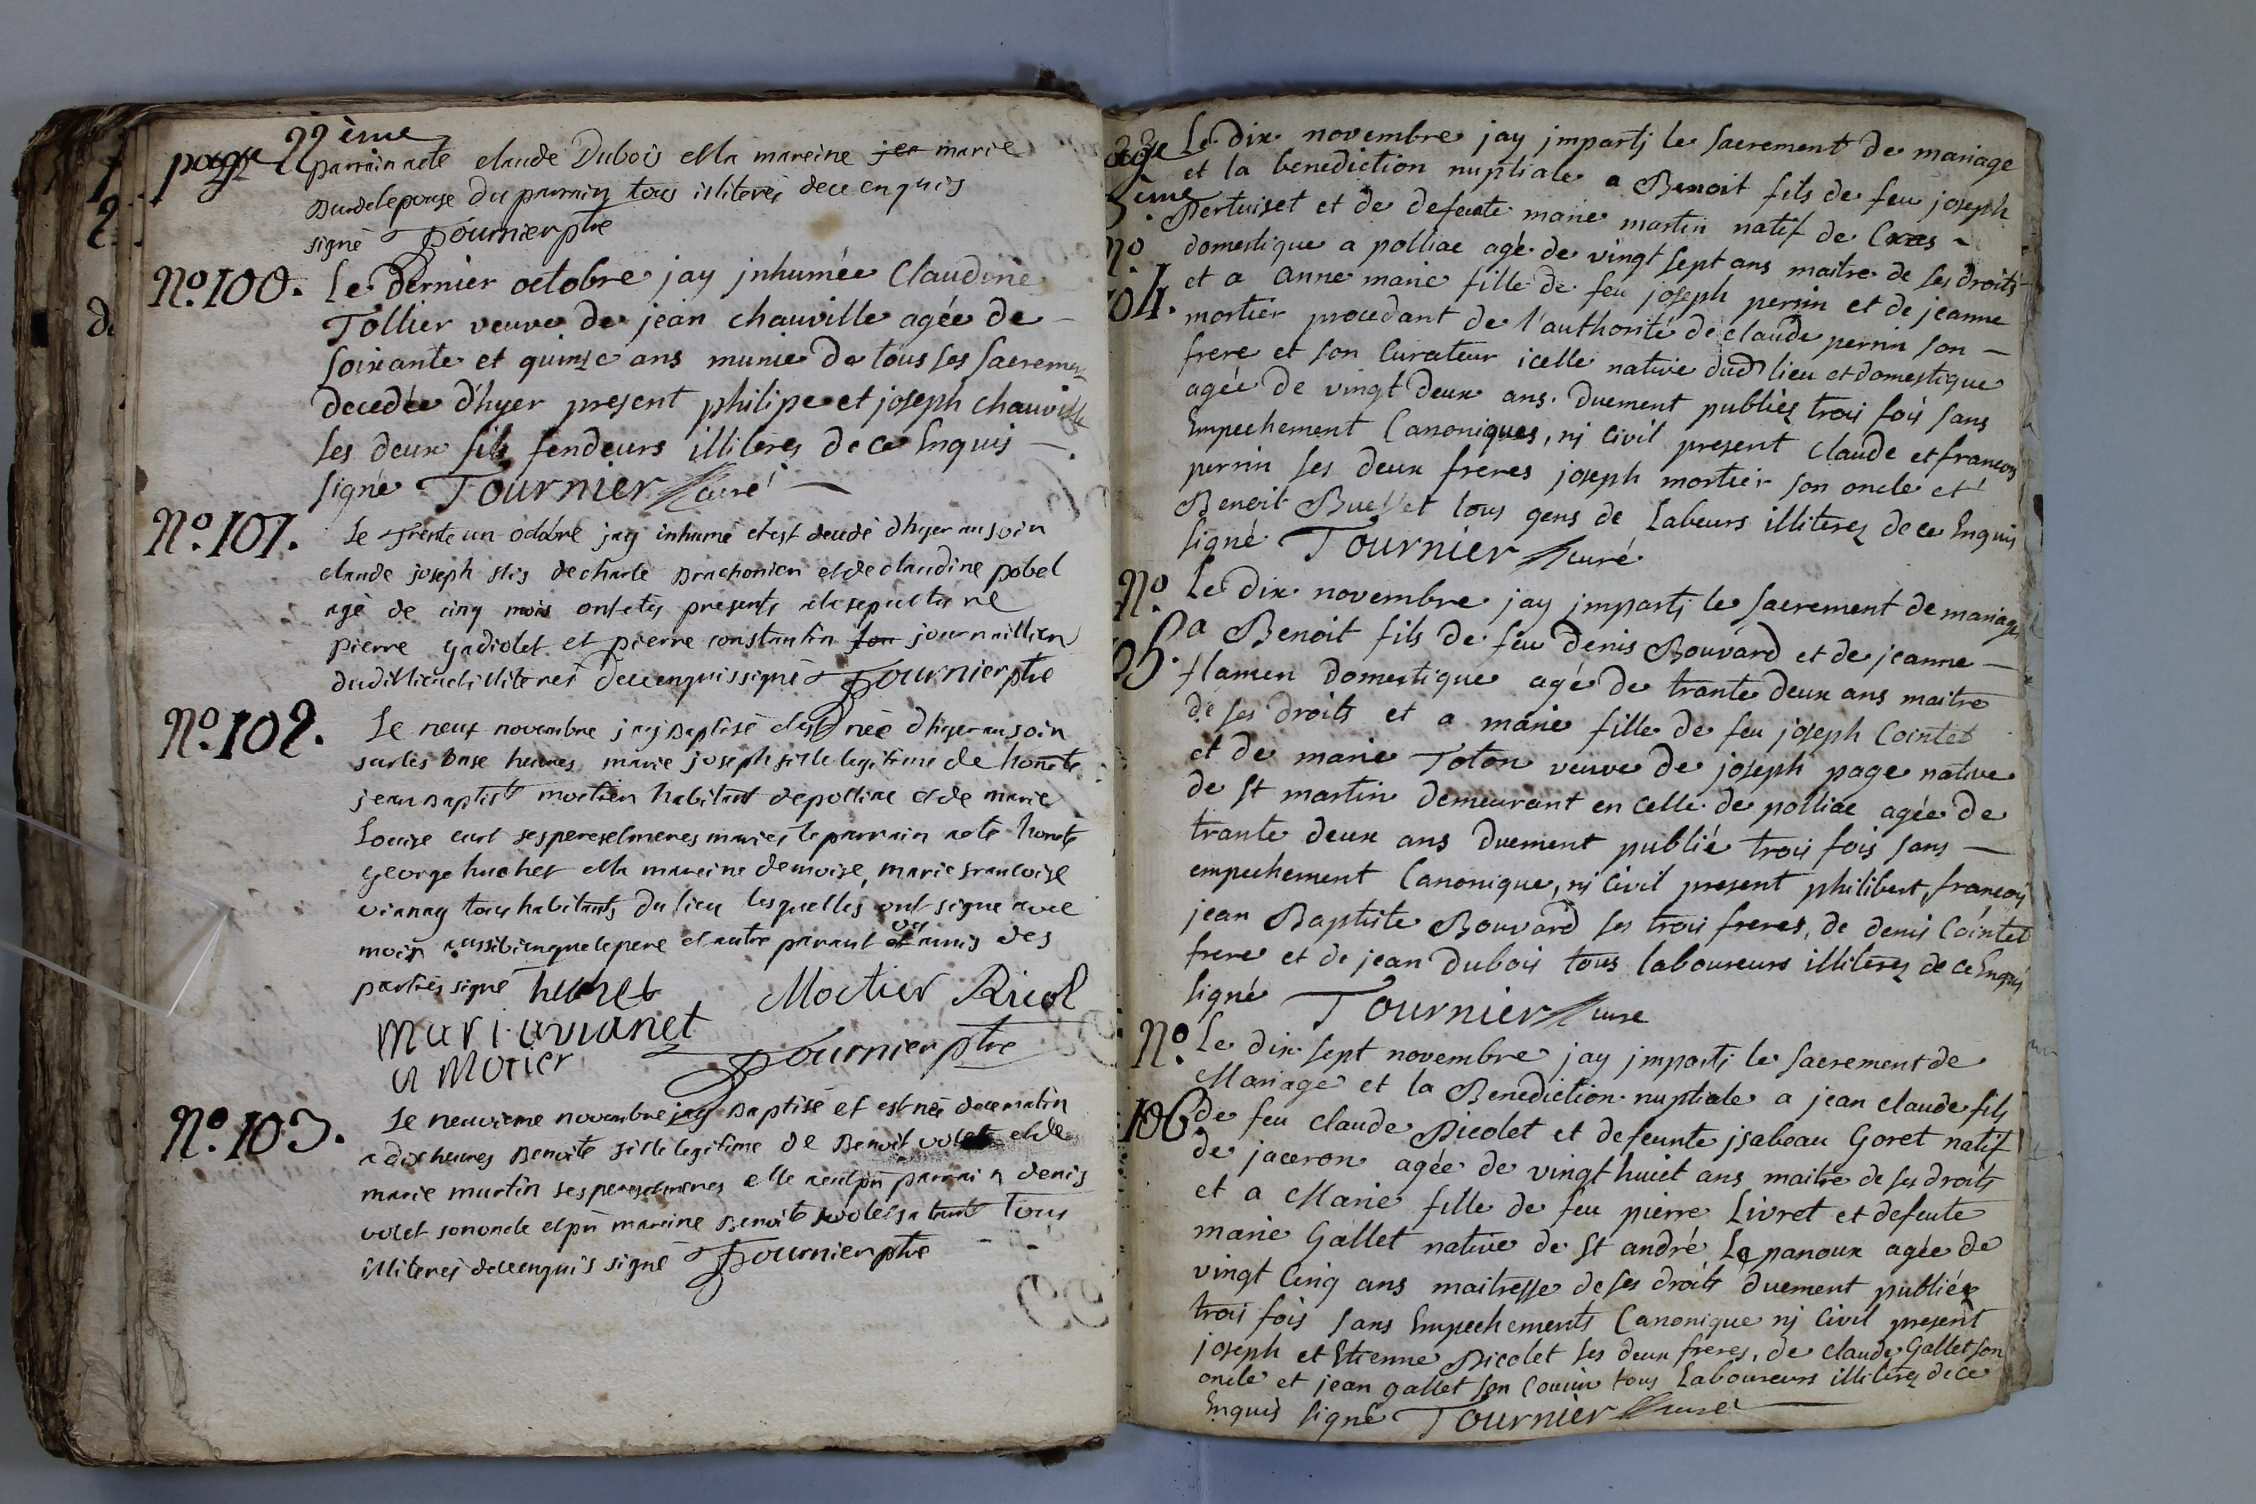 page 22ème
parrain a eté claude Dubois et la mareine jea marie
Bundel epouse du parrain tous illiterés de ce enquis
signé Tournier ptre
No. 100. Le dernier octobre jay jnhumée Claudine
Tollier veuve de jean chauville agée de
soixante et quinze ans munie de tous ses sacremen
decedée d'hyer present philipe et joseph chauville
ses deux fils fendeurs illiterés de ce Enquis
signé Tournier curé
No. 101. Le Trente un octobre jay inhumé et est decedé dhyer au soin
claude joseph fils de charle Brachonien et de claudine pobel
agé de cinq mois ont etés presents a la sepulture
pierre gadiolet et pierre constantin son journaillien
dudit lieu illiterés de ce enquis signé Tournier ptre
No. 102. Le neuf novembre jay Baptisé et est née dhyer au soin
sur les onse heures marie joseph fille legitime de honete
jean Baptist mortier habitant de polliac et de marie
Louise curt ses pere et meres mariés le parrain a eté honete
george huchet et la mareine demoise, marie francoise
vianay tous habitants du lieu lesquelles ont signe avec
moin aussi bien que le pere et autre parant et amis des
parties signé huchet Mortier Ricol
Mari avianet
a Morier Tournier ptre
No. 103. Le neuvieme novembre jay Baptisé et est née de ce matin
a dix heures Benoite fille legitime de Benoit volet et de
marie martin ses pere et meres elle a eut pn parrain denis
volet son oncle et pn mareine Benoite volet sa tante Tous
illiterés de ce enquis signé Tournier ptre
Le dix novembre jay jmparti le sacrement de mariage
et la benediction nuptiale a Benoit fils de feu joseph
Pertuiset et de defeute marie martin natif de Cras
No. 04. domestique a polliac agé de vingt sept ans maitre de ses droits
et a anne marie fille de feu joseph perrin et de jeanne
mortier procedant de l'authorité de claude perrin son
frere et son Curateur icelle native dud lieu et domestique
agée de vingt deux ans. duement publiéz trois fois sans
Empechement Canoniques, nj civil present claude et francois
perrin ses deux freres joseph mortier son oncle et
Benoit Buellet tous gens de Labeurs illiterez de ce Enquis
signé Tournier curé
No. 05. Le dix novembre jay jmparti le sacrement de mariage
a Benoit fils de feu Denis Bouvard et de jeanne
flamen domestique agé de trante deux ans maitre
de ses droits et a marie fille de feu joseph Cointet
et de marie Toton veuve de joseph page native
de st martin demeurant en celle de polliac agée de
trante deux ans duement publié trois fois sans
empechement Canonique, nj civil present philibert, francois
jean Baptiste Bouvard ses trois freres, de denis Cointet
frere et de jean Dubois tous laboureurs illiterez de ce Enquis
signé Tournier cure
No. 106 Le dix sept novembre jay jmparti le sacrement de
Mariage et la Benediction nuptiale a jean claude fils
de feu claude Picolet et defeunte jsabeau Goret natif
de jaceron agée de vingt huiet ans maitre de ses droits
et a Marie fille de feu pierre Livret et defeute
marie Gallet native de st andré Le panoux agée de
vingt Cinq ans maitresse de ses droits duement publiéz
trois fois sans Empechements Canonique nj Civil present
joseph et Etienne Picolet ses deux freres, de claude Gallet son
oncle et jean gallet son Cousin tous Laboureurs illiterez de ce
Enquis signé Tournier curé